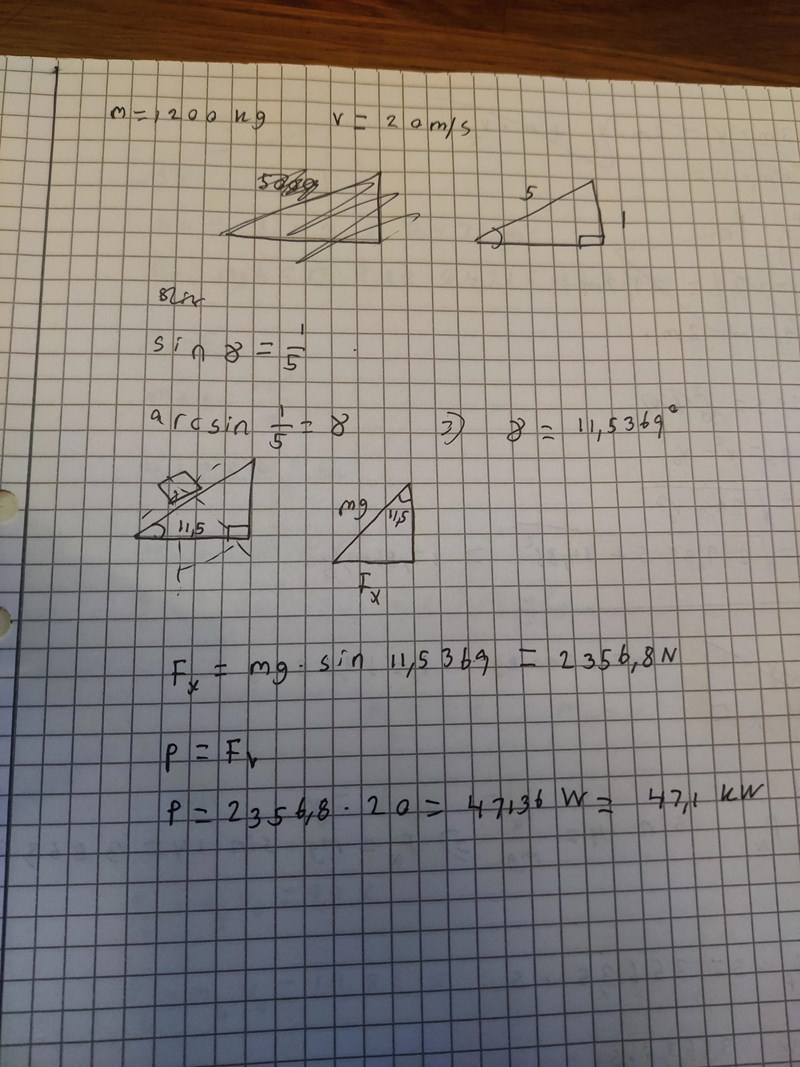 m = 1200 kg v = 20 m/s
5
1
sin
sin γ = 1/5
arcsin 1/5 = γ ⇒ γ = 11,5369°
11,5
mg 11,5
Fx
Fx = mg · sin 11,5369 = 2356,8 N
P = Fv
P = 2356,8 · 20 = 47136 W = 47,1 kW